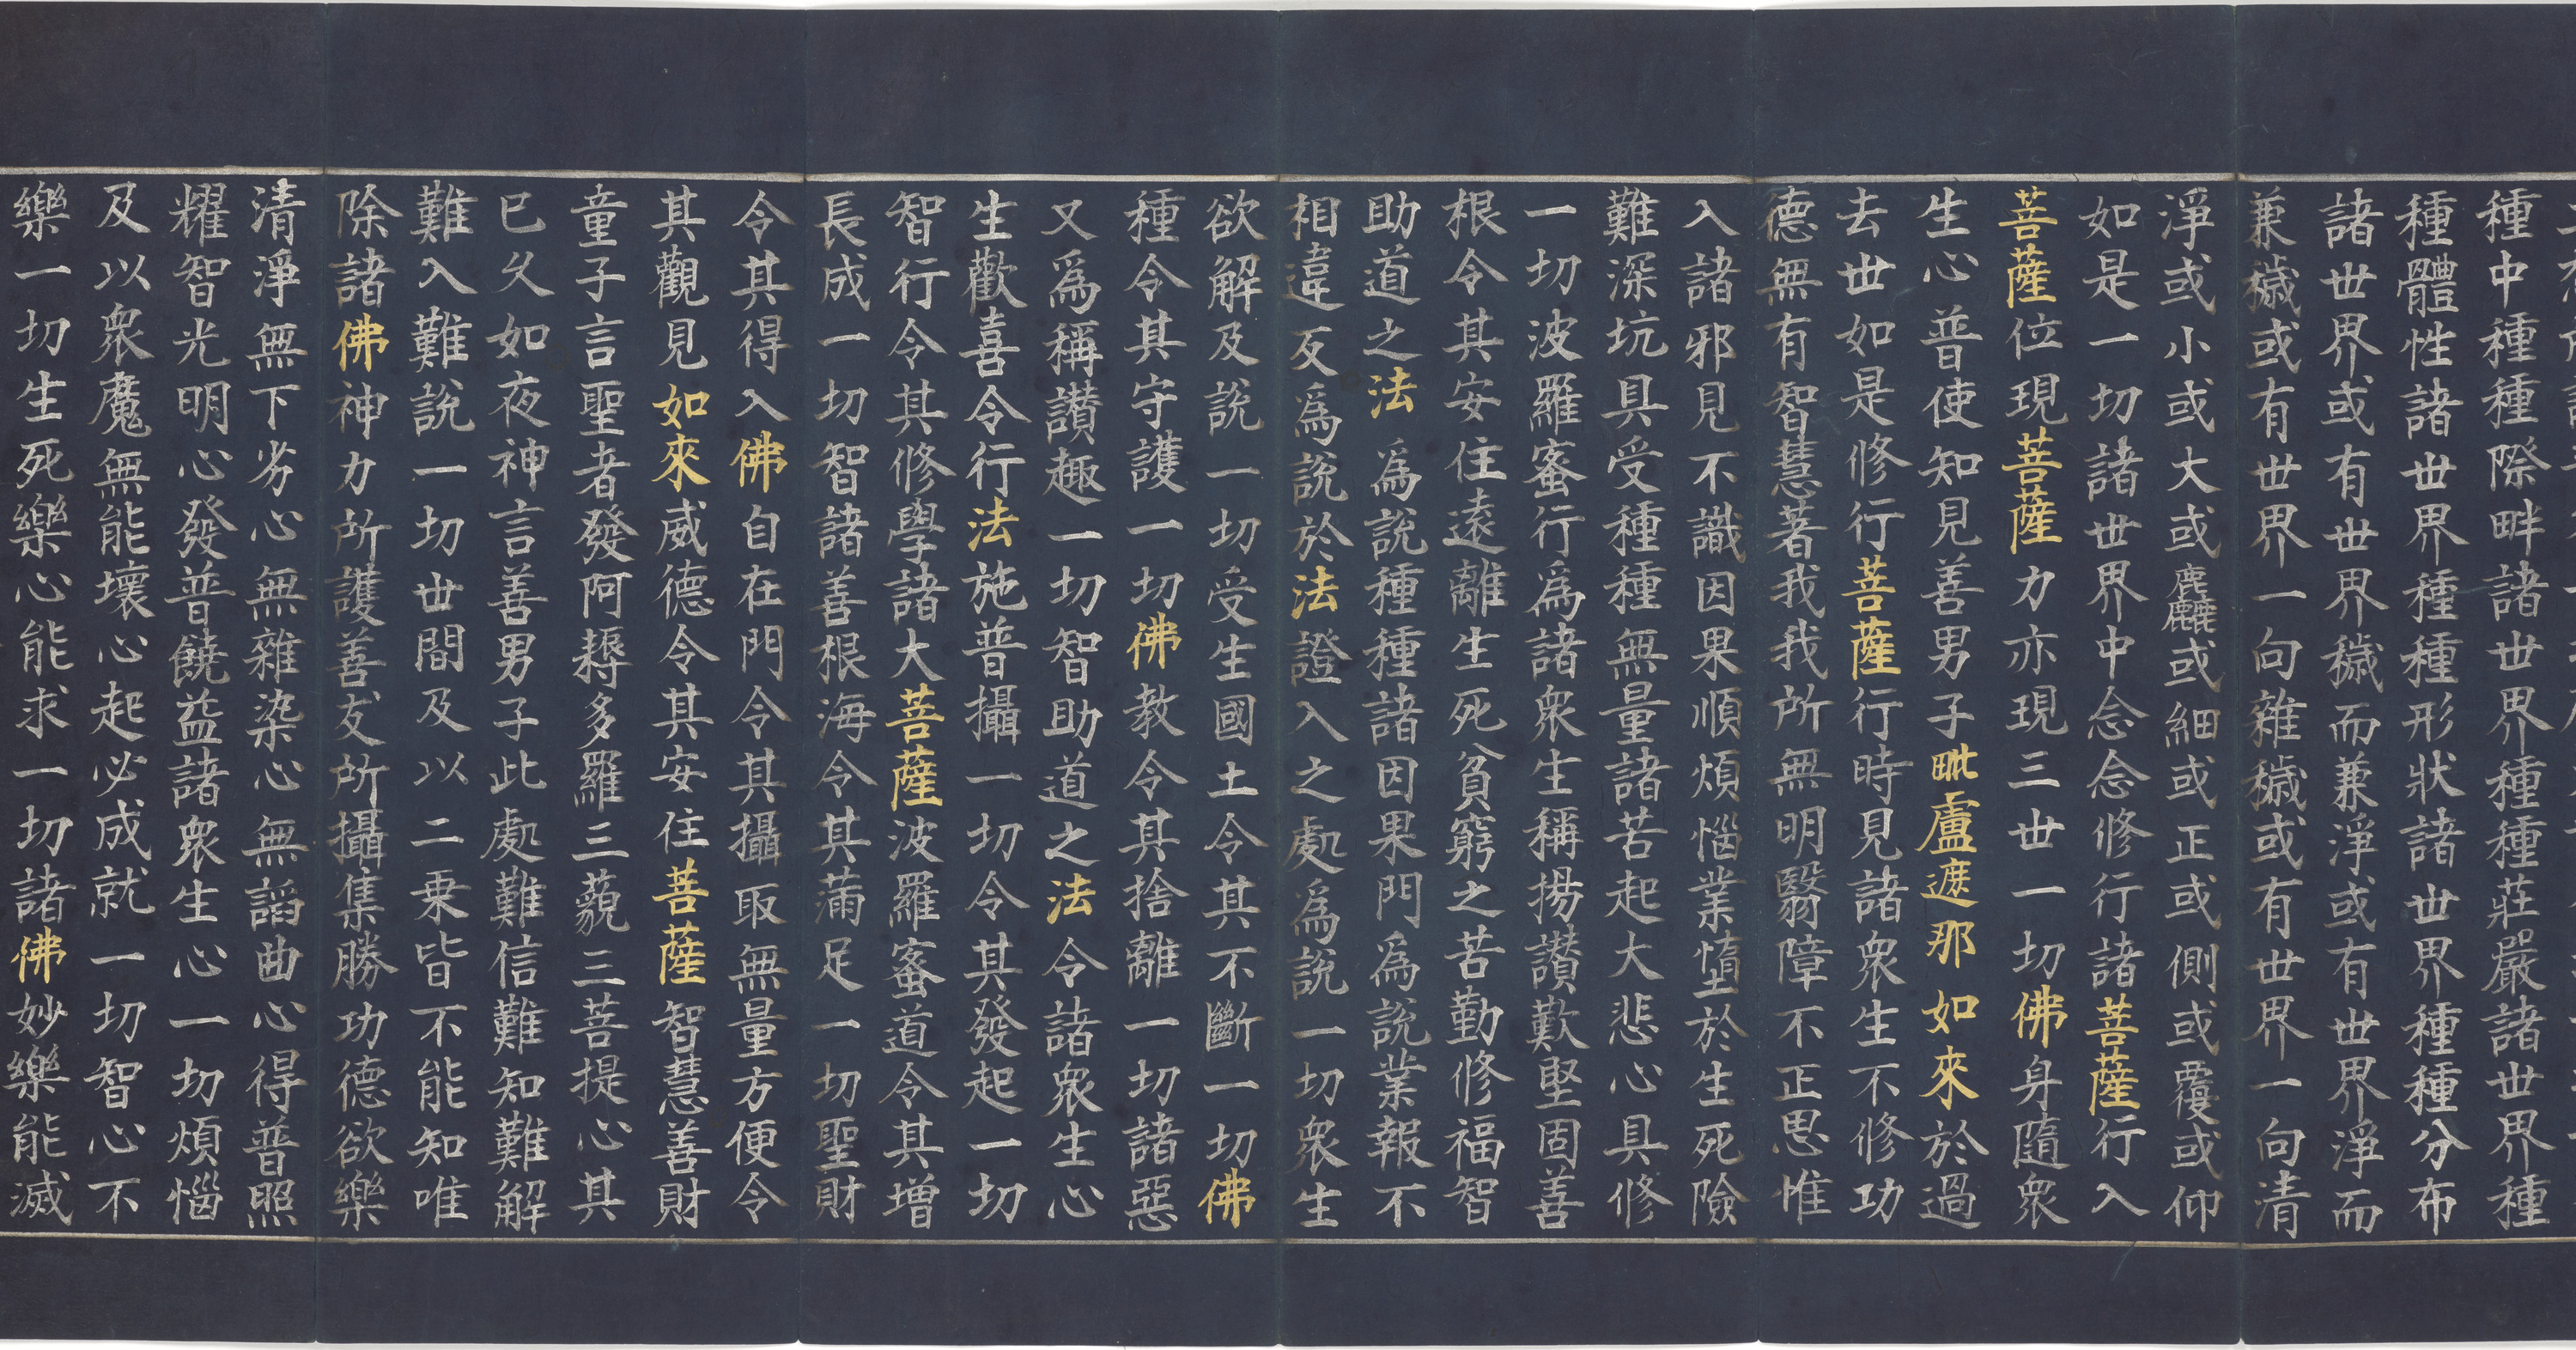 種中種種際畔諸世界種種莊嚴諸世界種
種體性諸世界種種形狀諸世界種種分布
諸世界或有世界穢而兼淨或有世界淨而
兼穢或有世界一向雜穢或有世界一向清
淨或小或大或麁或細或正或側或覆或仰
如是一切諸世界中念念修行諸菩薩行入
菩薩位現菩薩力亦現三世一切佛身隨衆
生心普使知見善男子毗盧遮那如來於過
去世如是修行菩薩行時見諸衆生不修功
德無有智慧著我我所無明翳障不正思惟
入諸邪見不識因果順煩惱業墮於生死險
難深坑具受種種無量諸苦起大悲心具修
一切波羅蜜行爲諸衆生稱揚讚歎堅固善
根令其安住遠離生死貧窮之苦勤修福智
助道之法爲說種種諸因果門爲說業報不
相違反爲說於法證入之處爲說一切衆生
欲解及說一切受生國土令其不斷一切佛
種令其守護一切佛教令其捨離一切諸惡
又爲稱讚趣一切智助道之法令諸衆生心
生歡喜令行法施普攝一切令其發起一切
智行令其修學諸大菩薩波羅蜜道令其增
長成一切智諸善根海令其滿足一切聖財
令其得入佛自在門令其攝取無量方便令
其觀見如來威德令其安住菩薩智慧善財
童子言聖者發阿耨多羅三藐三菩提心其
已久如夜神言善男子此處難信難知難解
難入難說一切世間及以二乗皆不能知唯
除諸佛神力所護善友所攝集勝功德欲樂
清淨無下劣心無雜染心無諂曲心得普照
耀智光明心發普饒益諸衆生心一切煩惱
及以衆魔無能壞心起必成就一切智心不
樂一切生死樂心能求一切諸佛妙樂能滅